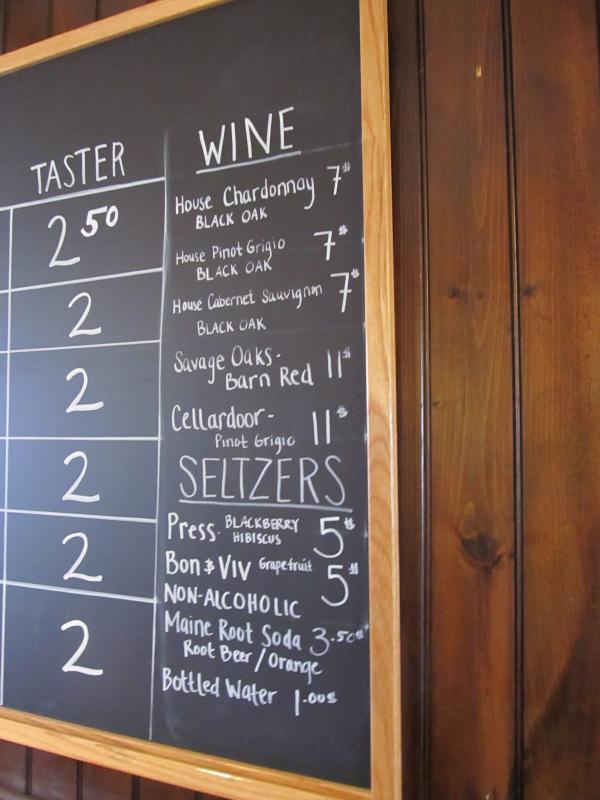 TASTER
2 50
2
2
2
2
2
WINE
House Chardonnay 7$
BLACK OAK
House Pinot Grigio 7$
BLACK OAK
House Cabernet Sauvignon 7$
BLACK OAK
Savage Oaks-
Barn Red 11$
Cellardoor- 11$
Pinot Grigio
SELTZERS
Press- BLACKBERRY 5$
HIBISCUS
Bon & Viv Grapefruit 5$
NON-ALCOHOLIC
Maine Root Soda 3.50$
Root Beer/Orange
Bottled Water 1.00$